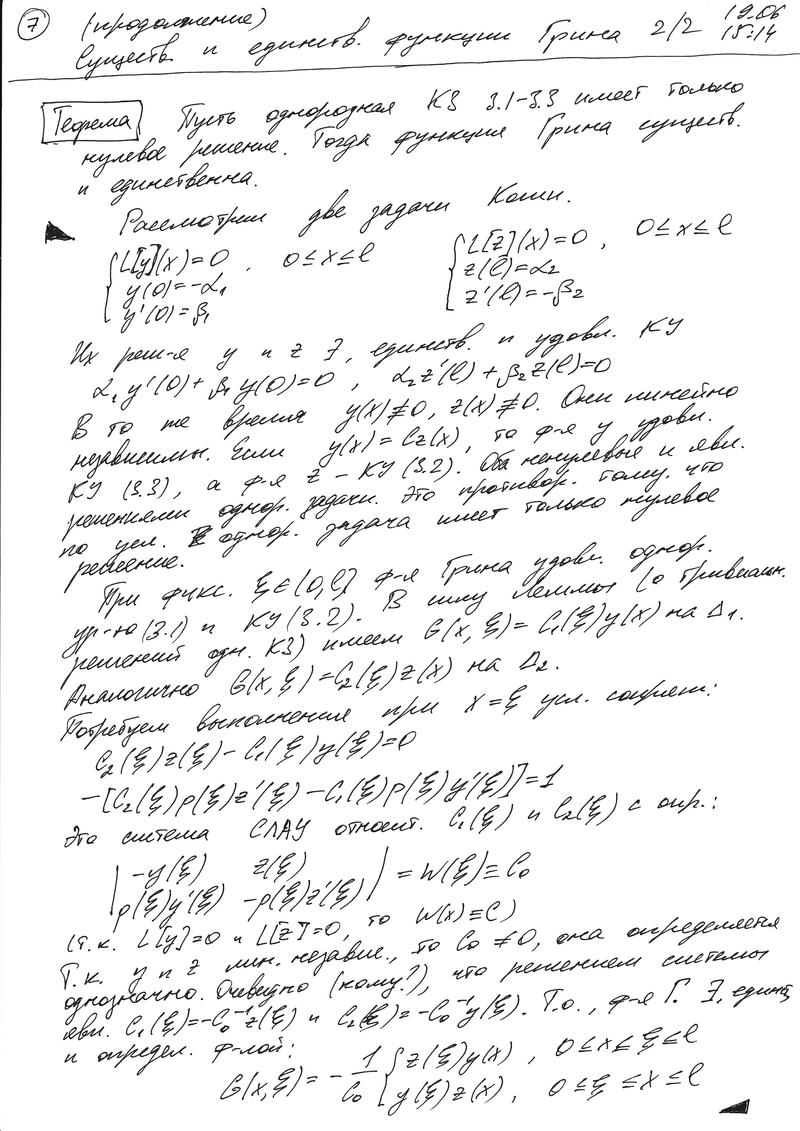 7 (продолжение)
Существ. и единств. функции Грина 2/2 19.06 15:14
Теорема Пусть однородная КЗ 3.1-3.3 имеет только
нулевое решение. Тогда функция Грина существ.
и единственна.
Рассмотрим две задачи Коши.
{ L[y](x)=0, 0≤x≤l { L[z](x)=0, 0≤x≤l
y(0)=-α₁ z(l)=α₂
y'(0)=β₁ z'(l)=-β₂
Их реш-я y и z ∃, единств. и удовл. КУ
α₁y'(0)+β₁y(0)=0, α₂z'(l)+β₂z(l)=0
В то же время y(x)≢0, z(x)≢0. Они линейно
независимы. Если y(x)=Cz(x), то ф-я y удовл.
КУ (3.3), а ф-я z - КУ (3.2). Оба ненулевые и явл.
решениями однор. задачи. Это противор. тому, что
по усл. однор. задача имеет только нулевое
решение.
При фикс. ξ∈(0,l) ф-я Грина удовл. однор.
ур-ю (3.1) и КУ (3.2). В силу Леммы (о тривиальн.
решений одн. КЗ) имеем G(x,ξ)=C₁(ξ)y(x) на Δ₁.
Аналогично G(x,ξ)=C₂(ξ)z(x) на Δ₂.
Потребуем выполнения при x=ξ усл. сопряж:
C₂(ξ)z(ξ)-C₁(ξ)y(ξ)=0
-[C₂(ξ)p(ξ)z'(ξ)-C₁(ξ)p(ξ)y'(ξ)]=1
Эта система СЛАУ относит. C₁(ξ) и C₂(ξ) с опр.:
| -y(ξ) z(ξ) |
| p(ξ)y'(ξ) -p(ξ)z'(ξ) | = W(ξ)≡C₀
(т.к. L[y]=0 и L[z]=0, то W(x)≡C)
Т.к. y и z лин. независ., то C₀≠0, она определяется
однозначно. Очевидно (кому?), что решением системы
явл. C₁(ξ)=-C₀⁻¹z(ξ) и C₂(ξ)=-C₀⁻¹y(ξ). Т.о., ф-я Г. ∃, единств,
и определ. ф-лой:
G(x,ξ)= -1/C₀ { z(ξ)y(x), 0≤x≤ξ≤l
y(ξ)z(x), 0≤ξ≤x≤l